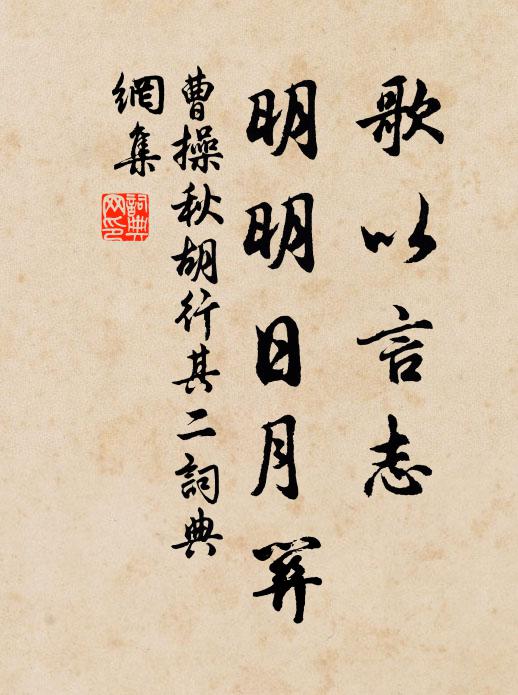 歌以言志
明明日月
曹操秋胡行其二詞典
網集
詞典
网印